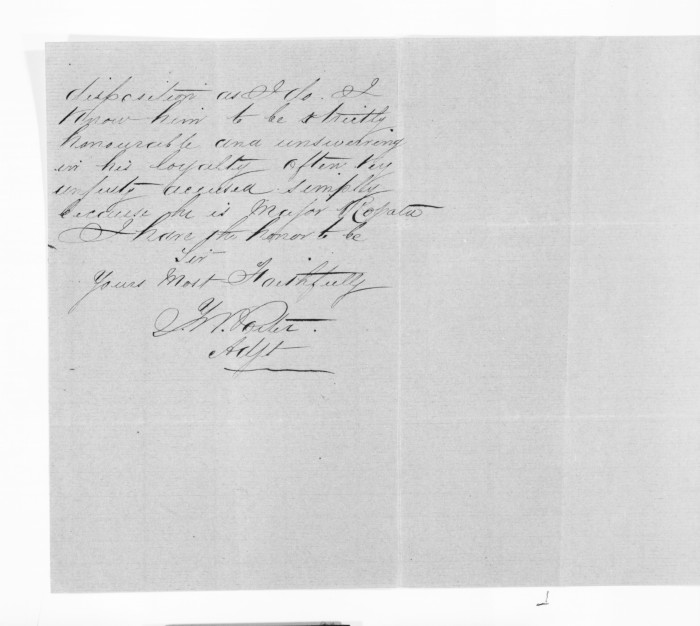 disposition as I do. I
know him to be strictly
honourable and unswerving
in his loyalty often
unjustly accused simply
because he is Major Ropata
I have the honor to be
Sir
Yours Most Faithfully
T.W. Porter.
Adjt
1